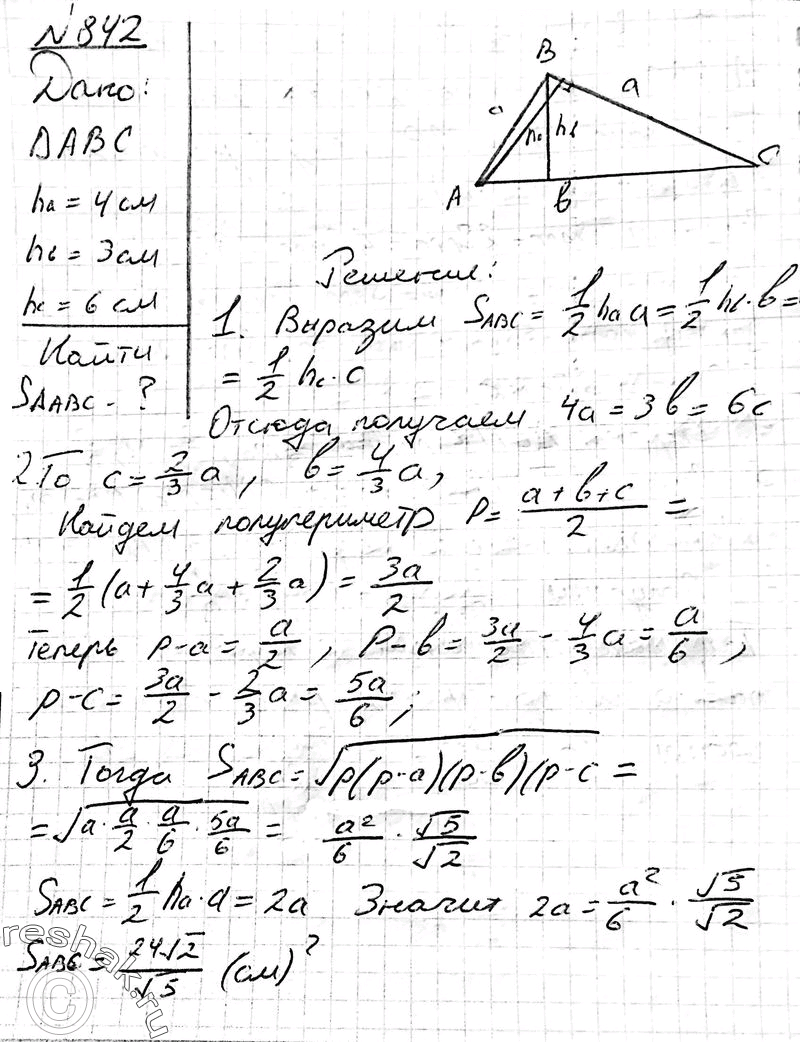 N 842
Дано:
ΔABC
ha = 4 см
hв = 3 см
hc = 6 см
Найти
SΔABC - ?
B
a
c
hₐ
hв
A
в
C
Решение:
1. Выразим SABC = 1/2 ha a = 1/2 hв · в =
= 1/2 hc · c
Отсюда получаем 4a = 3в = 6c
2. То c = 2/3 a, в = 4/3 a,
Найдем полупериметр P = (a + в + c)/2 =
= 1/2 (a + 4/3 a + 2/3 a) = 3a/2
Теперь p - a = a/2, P - в = 3a/2 - 4/3 a = a/6,
p - c = 3a/2 - 2/3 a = 5a/6;
3. Тогда SABC = √p(p-a)(p-в)(p-c =
= √a · a/2 · a/6 · 5a/6 = a²/6 · √5/√2
SABC = 1/2 ha · a = 2a Значит 2a = a²/6 · √5/√2
SABC = 24√2/√5 (см)²
reshak.ru
©